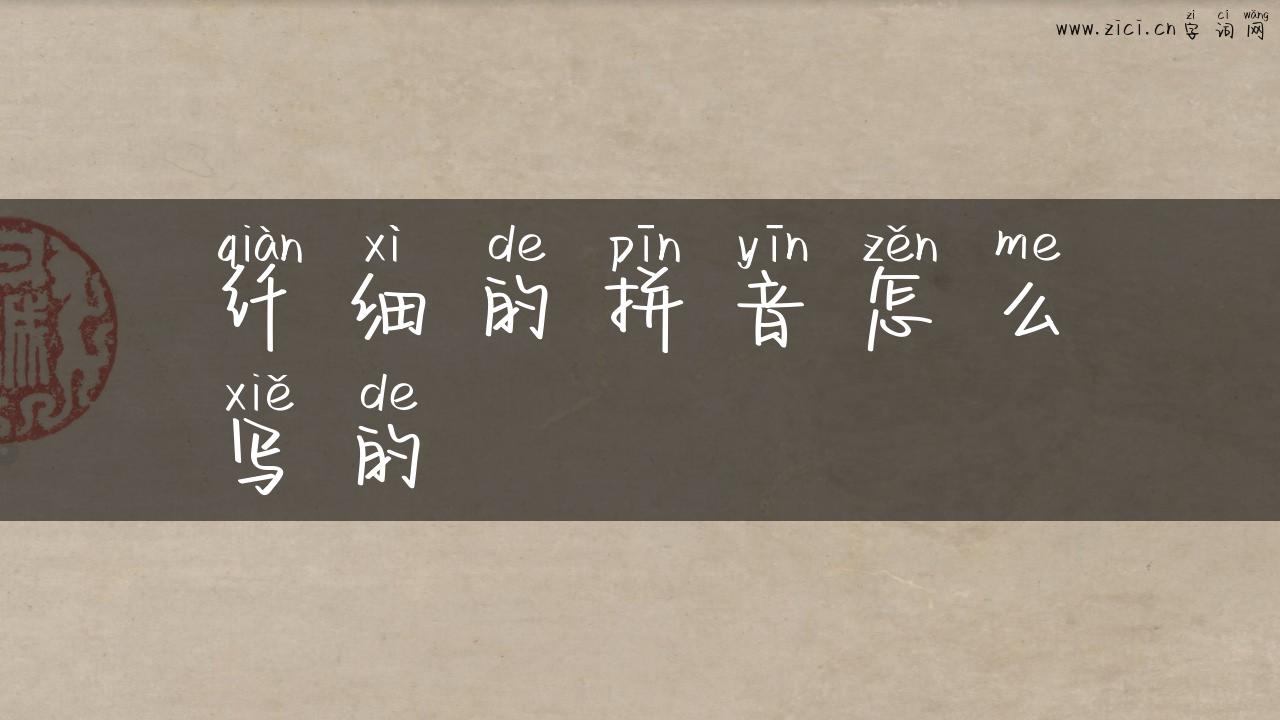 zì cí wǎng
www.zici.cn 字词网
qiàn xì de pīn yīn zěn me
纤细的拼音怎么
xiě de
写的